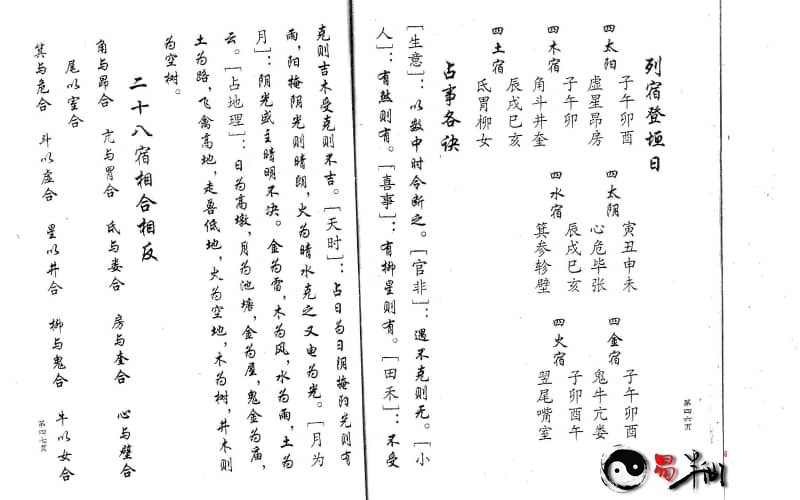 列宿登垣日
四太阳
子午卯酉
虚星昴房
四太阴
寅丑申未
心危毕张
四金宿
子午卯酉
鬼牛亢娄
四木宿
子午卯
角斗井奎
四水宿
辰戌巳亥
箕参轸壁
四火宿
子卯酉午
翌尾嘴室
四土宿
辰戌巳亥
氐胃柳女
占事各诀
[生意]：以数中时令断之。[官非]：遇不克则无。[小
人]：有煞则有。[喜事]：有柳星则有。[田禾]：不受
第四六页
克则吉木受克则不吉。[天时]：占日为日阴掩阳光则有
雨，阳掩阴光则晴朗，火为晴水克之又电为光。[月为
月]：阴光盛主晴明不决。金为雷，木为风，水为雨，土为
云。[占地理]：日为高墩，月为池塘，金为屋，鬼金为庙，
土为路，飞禽高地，走兽低地，火为空地，木为树，井木则
为空树。
二十八宿相合相反
角与昴合 亢与胃合 氐与娄合 房与奎合 心与壁合
尾以室合
箕与危合 斗以虚合 星以井合 柳与鬼合 牛以女合
第四七页
易半仙